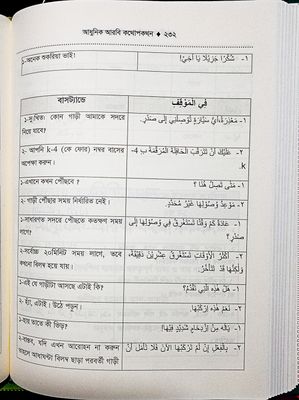 আধুনিক আরবি কথোপকথন ◆ ২৩২
১-অনেক শুকরিয়া ভাই।
١- شُكْرًا جَزِيْلًا يَا أَخِيْ!
বাসস্ট্যান্ডে
فِي الْمَوْقِفِ
১-দুঃখিত! কোন গাড়ী আমাকে সদরে
নিয়ে যাবে?
١- مَعْذِرَةً، أَيُّ سَيَّارَةٍ تُوْصِلُنِيْ إِلَى صَدَرَ؟
২- আপনি k-4 (কে ফোর) নম্বর বাসের
অপেক্ষা করুন।
٢- عَلَيْكَ أَنْ تَتَرَقَّبَ الْحَافِلَةَ الْمُرَقَّمَةَ بِـ 4-
k.
১-এখানে কখন পৌঁছবে ?
١- مَتَى تَصِلُ هُنَا ؟
২- গাড়ী পৌঁছার সময় নির্ধারিত নেই।
٢- مَوْعِدُ وُصُوْلِهَا غَيْرُ مُحَدَّدٍ.
১-সাধারণত সদরে পৌঁছতে কতক্ষণ সময়
লাগে?
١- عَادَةً كَمْ وَقْتًا تَسْتَغْرِقُ فِيْ وُصُوْلِهَا إِلَى
صَدَرَ؟
২-সর্বোচ্চ ২০মিনিট সময় লাগে, তবে
কখনো বিলম্ব হয়ে যায়।
٢- أَكْثَرُ الْأَوْقَاتِ تَسْتَغْرِقُ عِشْرِيْنَ دَقِيْقَةً،
وَلٰكِنَّهَا قَدْ تَتَأَخَّرُ.
১-এই যে গাড়ীটা আসছে এটাই কি?
١- هَلْ هٰذِهِ الَّتِيْ تَقْدَمُ؟
২- হ্যাঁ, এটাই। উঠে পড়ুন।
٢- نَعَمْ هٰذِهِ اِرْكَبْهَا.
১-হায় তাতে কী ভিড়?
١- يَالَهُ مِنْ اِزْدِحَامٍ شَدِيْدٍ فِيْهَا!
২-বাস্তব, যদি এখন আরোহন না করুন
তাহলে আধাঘন্টা বিলম্ব ছাড়া পরবর্তী গাড়ী
٢- بِالْفِعْلِ إِنْ لَمْ تَرْكَبْهَا الْآنَ فَلَا تَأْمَلْ أَنْ